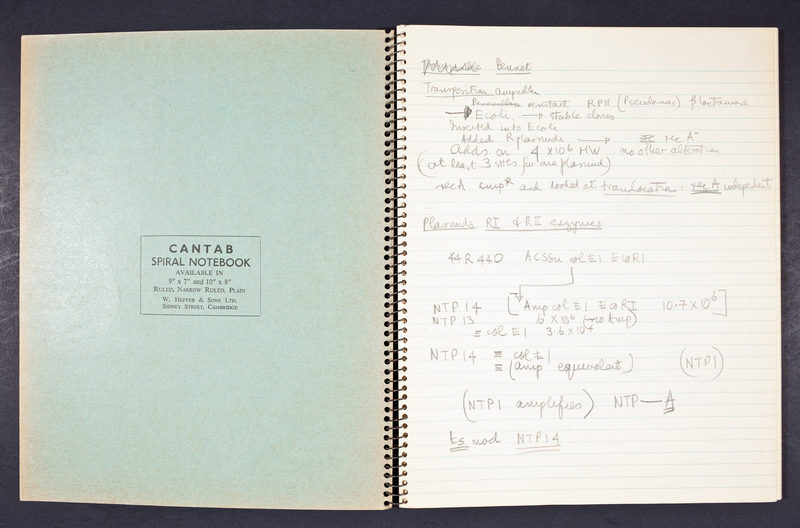 CANTAB
SPIRAL NOTEBOOK
AVAILABLE IN
9" x 7" and 10" x 8"
RULED, NARROW RULED, PLAIN
W. HEFFER & SONS LTD.
SIDNEY STREET, CAMBRIDGE
Bennet
Transposition ampicillin
resistant RP11 (Pseudomonas) β lactamase
Ecoli → stable clones
Inserted into Ecoli
Added R plasmids → rec A⁻
Adds on 4 x10⁶ MW no other alteration
(at least 3 sites for one plasmid)
recA ampᴿ and looked at translocation: rec A independent
Plasmids RI & RII enzymes
R440 ACSSu col E1 EcoR1
NTP14 [Amp col E1 EcoRI 10.7 x 10⁶]
NTP13 6 x10⁶ (not up)
≡ col E1 3.6 x 10⁴
NTP14 ≡ col E1 (NTP1)
≡ (amp equivalent)
(NTP1 amplifies) NTP—A
ts mod NTP14